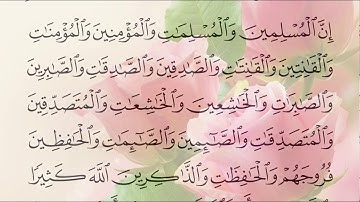 إِنَّ ٱلْمُسْلِمِينَ وَٱلْمُسْلِمَٰتِ وَٱلْمُؤْمِنِينَ وَٱلْمُؤْمِنَٰتِ
وَٱلْقَٰنِتِينَ وَٱلْقَٰنِتَٰتِ وَٱلصَّٰدِقِينَ وَٱلصَّٰدِقَٰتِ وَٱلصَّٰبِرِينَ
وَٱلصَّٰبِرَٰتِ وَٱلْخَٰشِعِينَ وَٱلْخَٰشِعَٰتِ وَٱلْمُتَصَدِّقِينَ
وَٱلْمُتَصَدِّقَٰتِ وَٱلصَّٰٓئِمِينَ وَٱلصَّٰٓئِمَٰتِ وَٱلْحَٰفِظِينَ
فُرُوجَهُمْ وَٱلْحَٰفِظَٰتِ وَٱلذَّٰكِرِينَ ٱللَّهَ كَثِيرًا